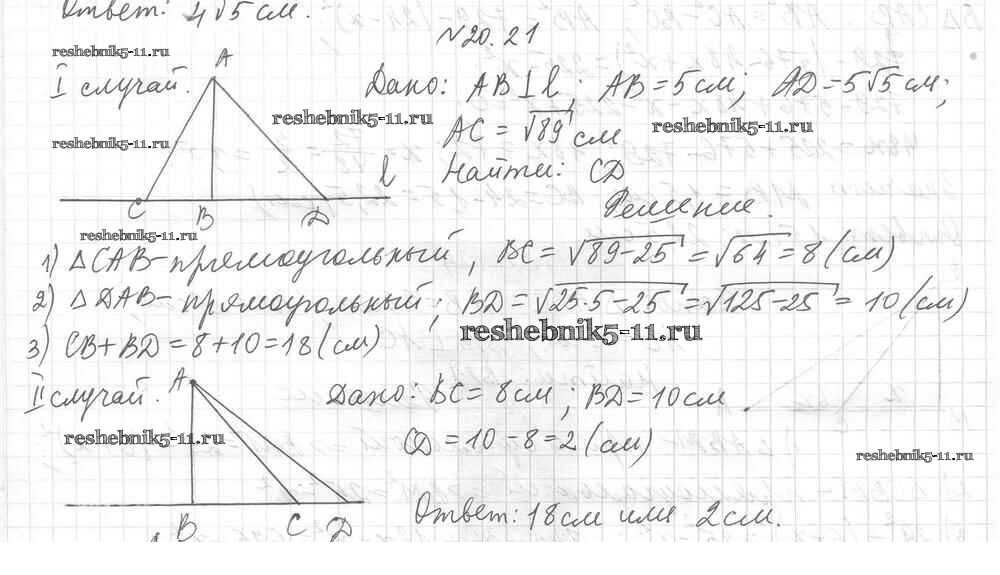 Ответ: 4√5 см.
№20.21
reshebnik5-11.ru
I случай.
A
Дано: AB ⊥ l; AB = 5 см; AD = 5√5 см;
reshebnik5-11.ru
AC = √89 см
reshebnik5-11.ru
reshebnik5-11.ru
Найти: CD
l
C B D
Решение.
reshebnik5-11.ru
1) △CAB - прямоугольный, BC = √89-25 = √64 = 8 (см)
2) △DAB - прямоугольный; BD = √25·5-25 = √125-25 = 10 (см)
reshebnik5-11.ru
3) CB+BD = 8+10 = 18 (см)
II случай.
A
Дано: BC = 8 см; BD = 10 см
reshebnik5-11.ru
CD = 10-8 = 2 (см)
reshebnik5-11.ru
B C D
Ответ: 18 см или 2 см.